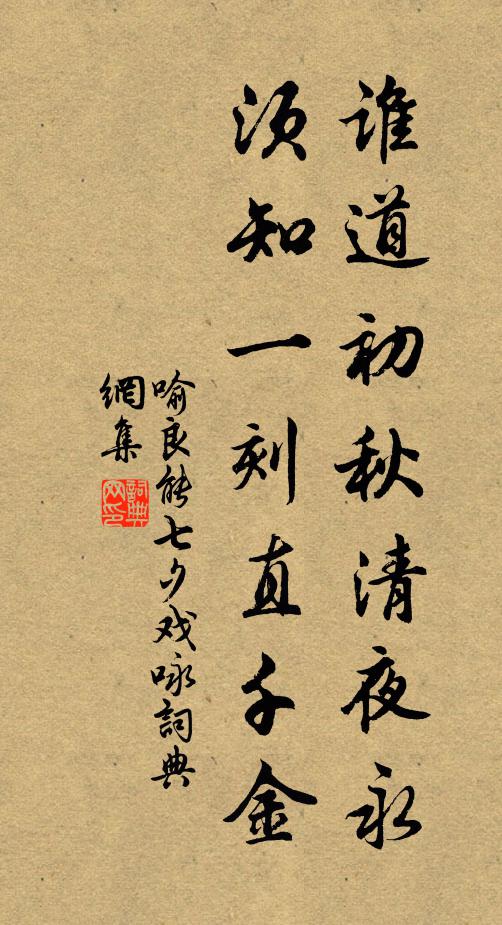 谁道初秋清夜永
须知一刻直千金
喻良能七夕戏咏詞典
網集
詞典
网印